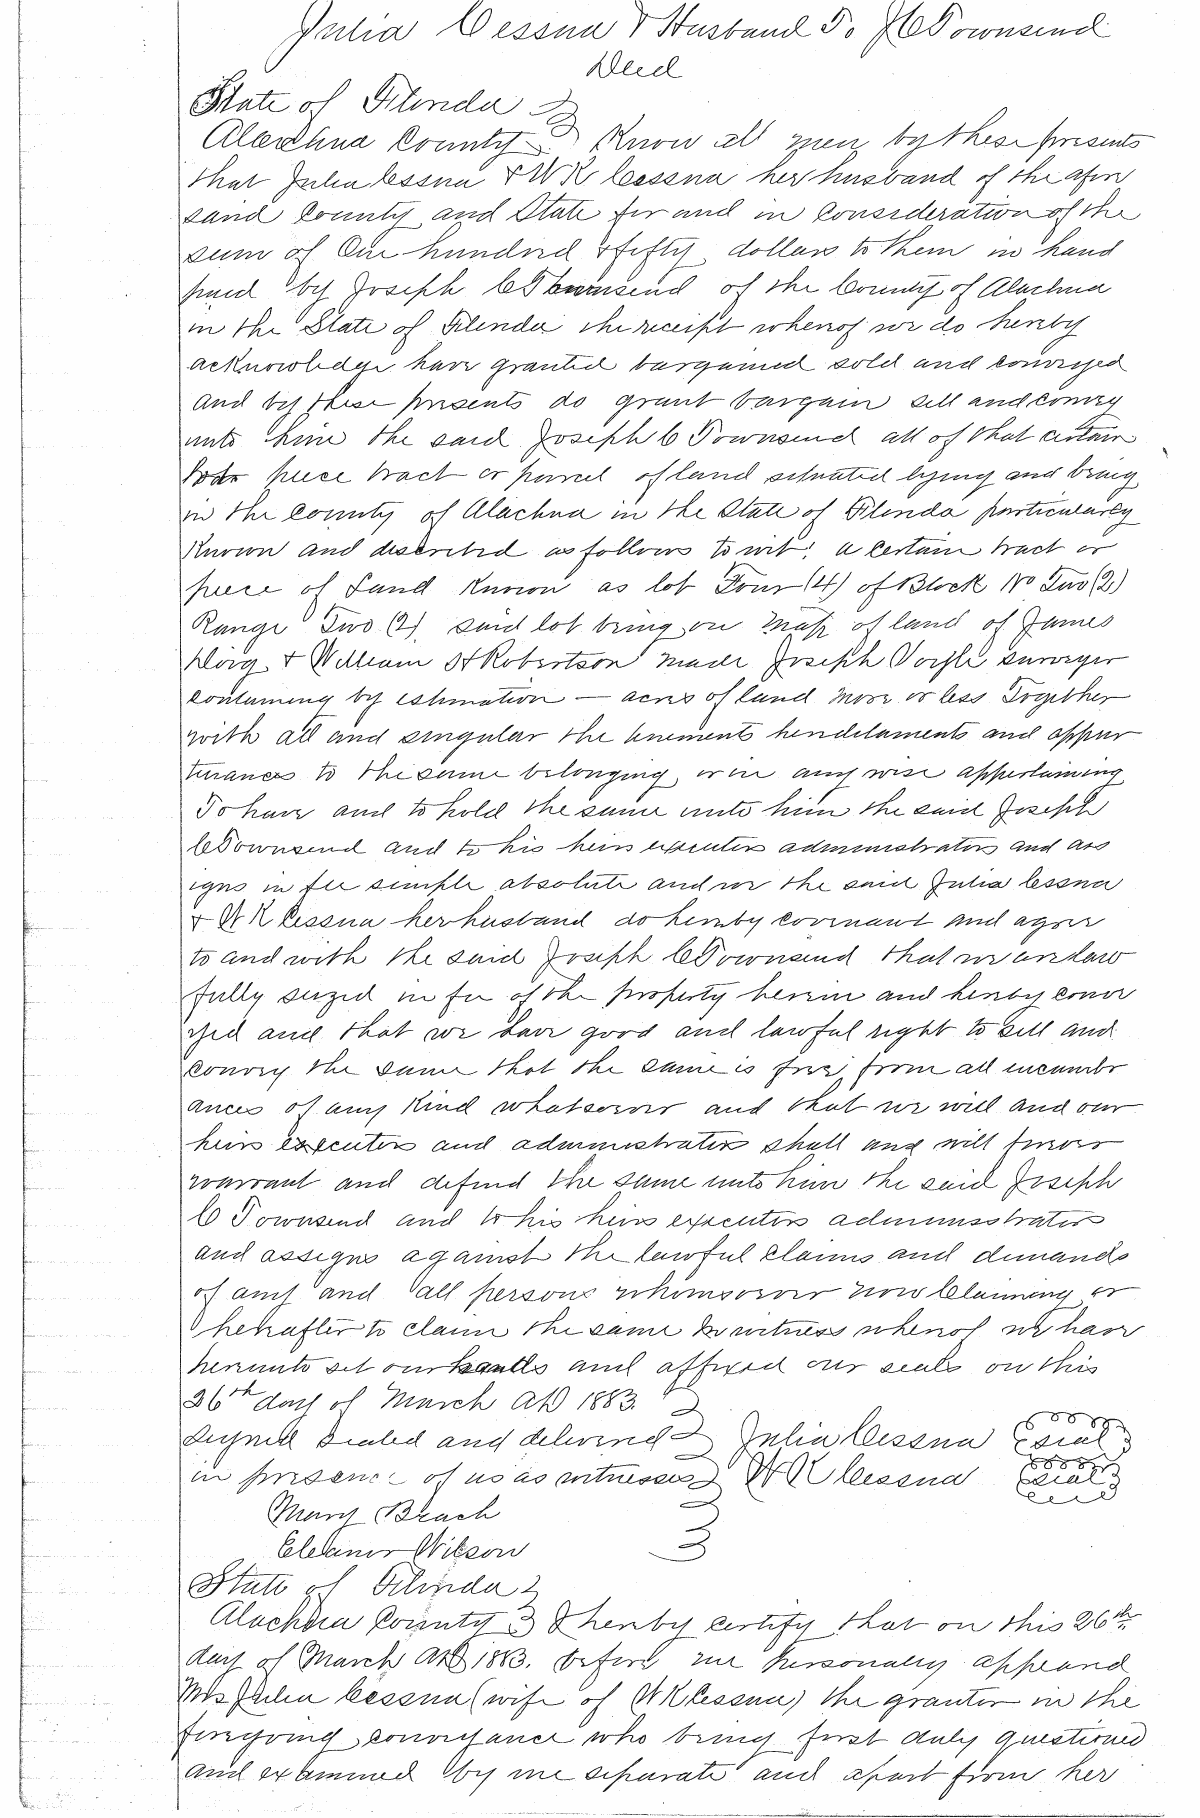 Julia Cessna & Husband To J C Townsend
Deed
State of Florida
Alachua County Know all men by these presents
that Julia Cessna & W K Cessna her husband of the afore
said County and State for and in consideration of the
sum of One hundred & fifty dollars to them in hand
paid by Joseph C Townsend of the County of Alachua
in the State of Florida the receipt whereof we do hereby
acknowledge have granted bargained sold and conveyed
and by these presents do grant bargain sell and convey
unto him the said Joseph C Townsend all of that certain
piece tract or parcel of land situated lying and being
in the County of Alachua in the State of Florida particularly
Known and described as follows to wit: a certain tract or
piece of Land Known as lot Four (4) of Block No Two (2)
Range Two (2) said lot being on Map of land of James
Doig & William H Robertson made Joseph surveyor
containing by estimation — acres of land more or less Together
with all and singular the tenements hereditaments and appur
tenances to the same belonging or in any wise appertaining
To have and to hold the same unto him the said Joseph
C Townsend and to his heirs executors administrators and ass
igns in fee simple absolute and we the said Julia Cessna
& W K Cessna her husband do hereby covenant and agree
to and with the said Joseph C Townsend that we are law
fully seized in fee of the property herein and hereby conve
yed and that we have good and lawful right to sell and
convey the same that the same is free from all incumbr
ances of any Kind whatsoever and that we will and our
heirs executors and administrators shall and will forever
warrant and defend the same unto him the said Joseph
C Townsend and to his heirs executors administrators
and assigns against the lawful claims and demands
of any and all persons whomsoever now Claiming or
hereafter to claim the same In witness whereof we have
hereunto set our hands and affixed our seals on this
26th day of March AD 1883.
Signed Sealed and delivered Julia Cessna Seal
in presence of us as witnesses W K Cessna Seal
Mary Beach
Eleanor Wilson
State of Florida
Alachua County I hereby certify that on this 26th
day of March AD 1883. before me Personally appeared
Mrs Julia Cessna (wife of W K Cessna) the grantor in the
foregoing conveyance who being first duly questioned
and examined by me separate and apart from her